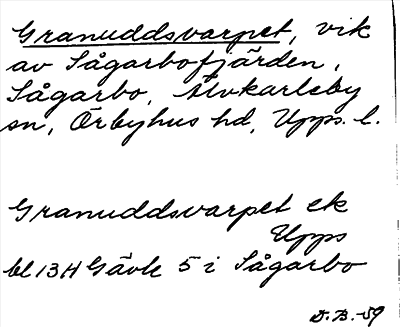 Granuddsvarpet, vik
av Sågarbofjärden,
Sågarbo, Älvkarleby
sn, Örbyhus hd, Upps. l.
Granuddsvarpet ek
Upps
bl 13H Gävle 5 i Sågarbo
D.B. -59